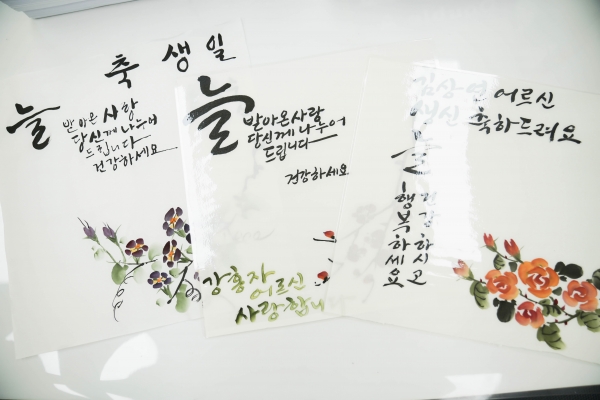 축 생일
늘
받아온 사랑
당신께 나누어
드립니다
건강하세요
늘
받아온 사랑
당신께 나누어
드립니다
건강하세요
강흥자
어르신
사랑합니
김산연 어르신
생신 축하드려요
늘
건강하시고
행복하세요